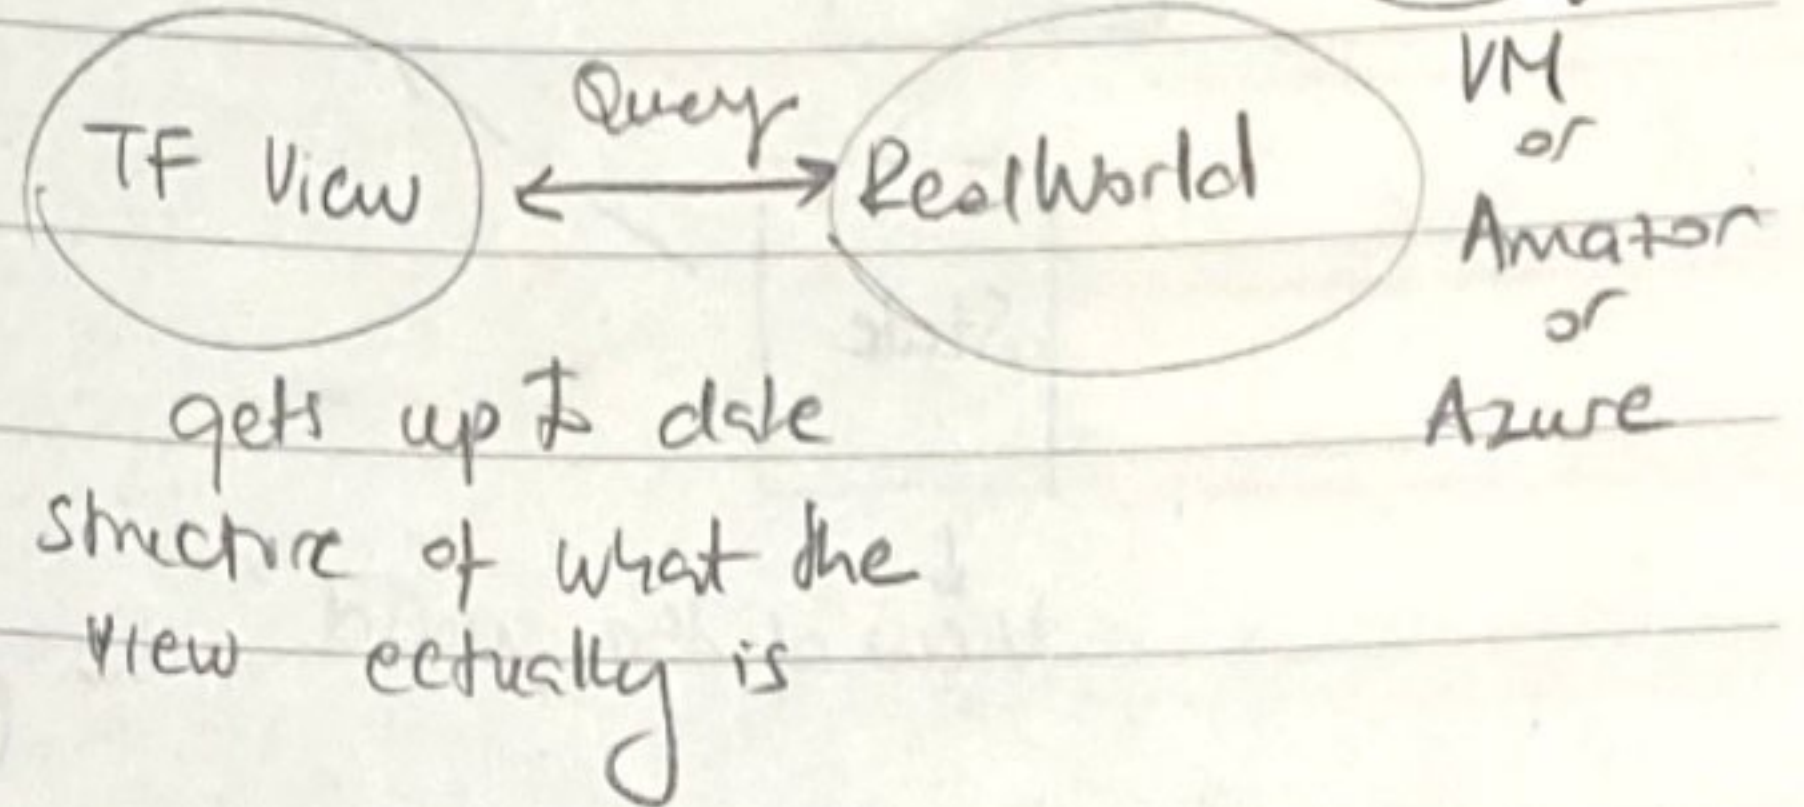 Query
TF View
RealWorld
VM
or
Amazon
or
Azure
gets up to date
structure of what the
view actually is